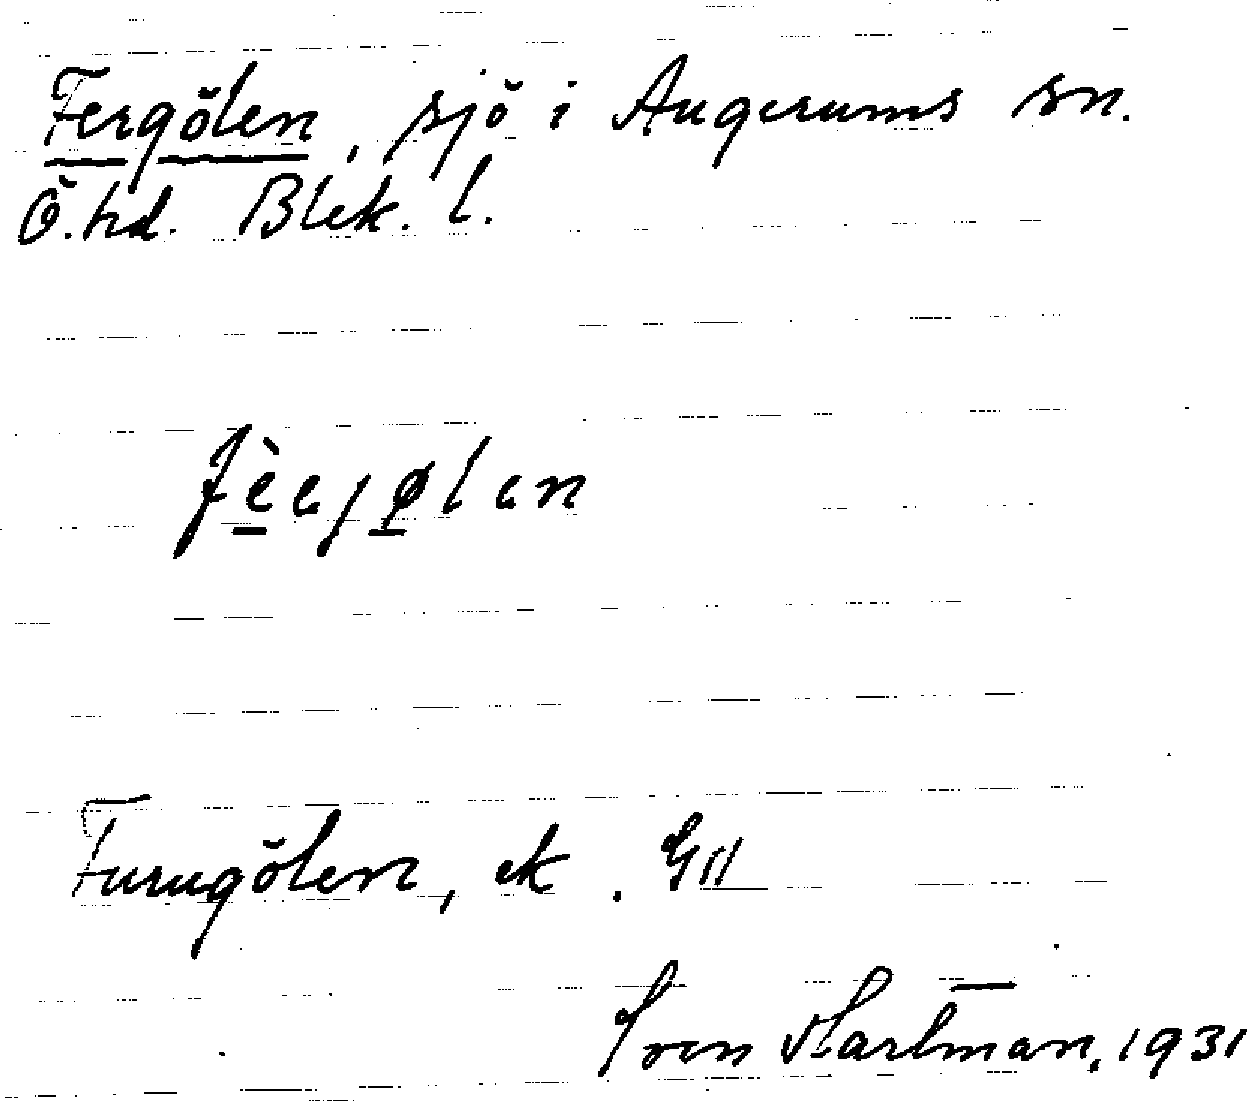 Fergölen, sjö i Augerums sn.
Ö. hd. Blek. l.
Furugölen, ek.
Sven Hartman, 1931